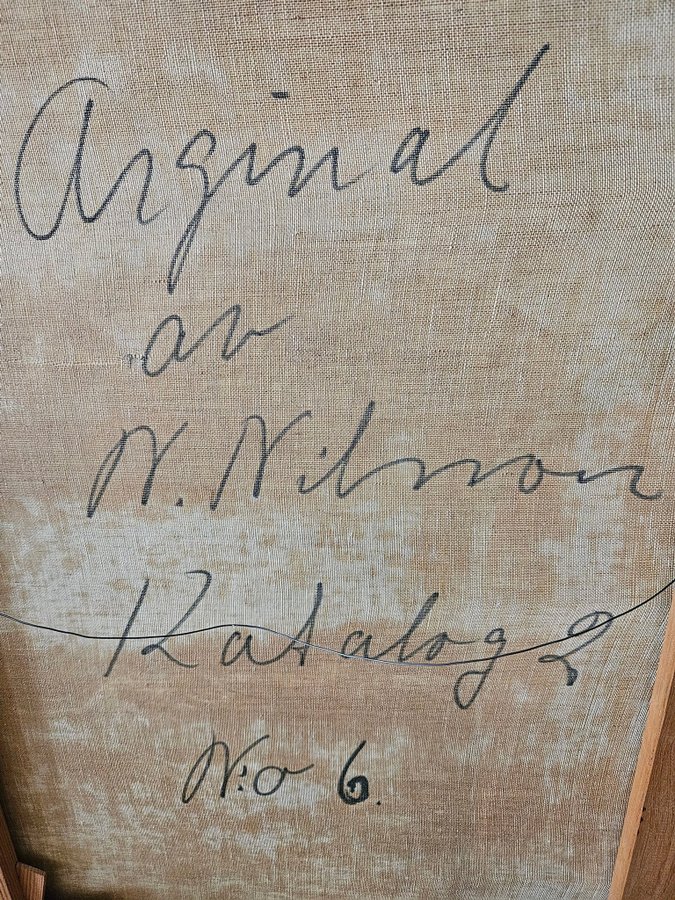 Arginal
av
N. Nilsson
Katalog 2
N:o 6.